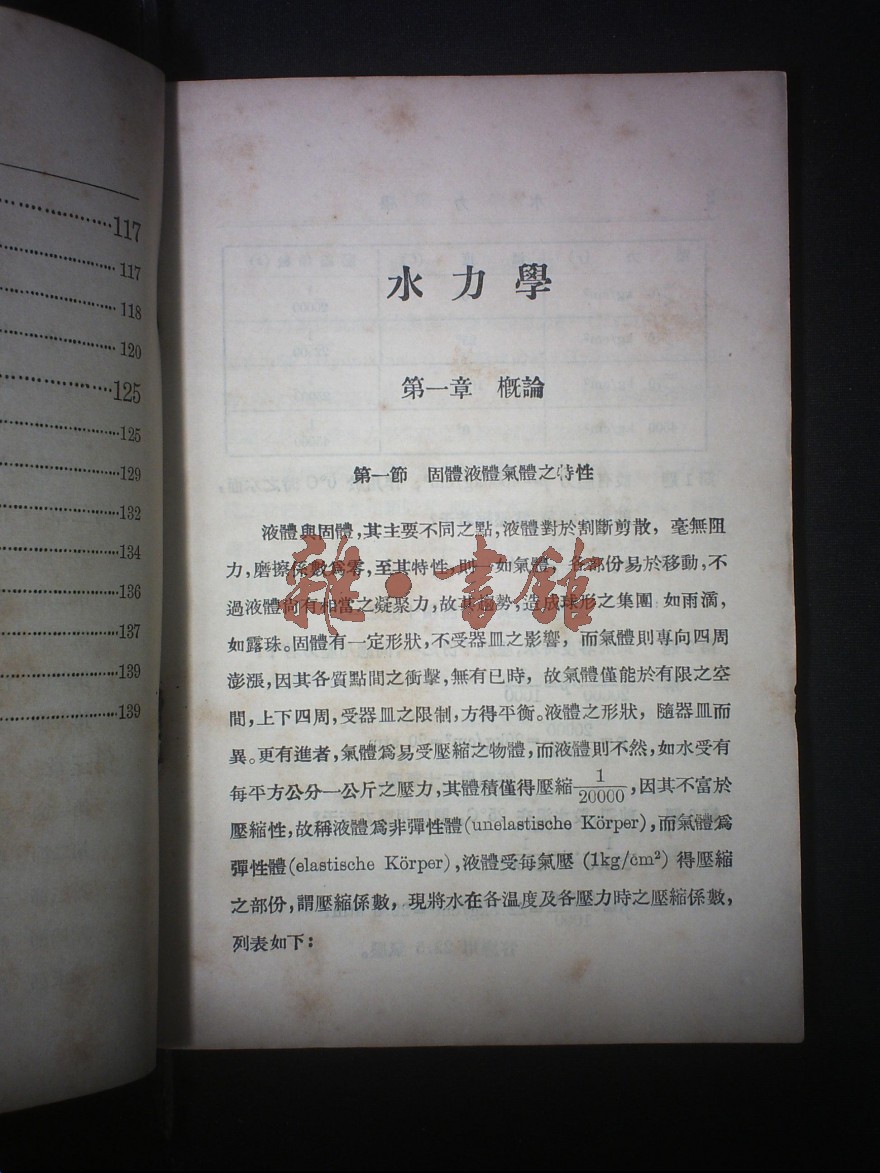 117
117
118
120
125
125
129
132
134
136
137
139
139
水力學
第一章 概論
第一節 固體液體氣體之特性
液體與固體,其主要不同之點,液體對於割斷剪散,毫無阻
力,磨擦係數爲零,至其特性,則一如氣體,各部份易於移動,不
過液體尙有相當之凝聚力,故其趨勢,造成球形之集團:如雨滴,
如露珠。固體有一定形狀,不受器皿之影響,而氣體則專向四周
澎漲,因其各質點間之衝擊,無有已時,故氣體僅能於有限之空
間,上下四周,受器皿之限制,方得平衡。液體之形狀,隨器皿而
異。更有進者,氣體爲易受壓縮之物體,而液體則不然,如水受有
每平方公分一公斤之壓力,其體積僅得壓縮 1/20000,因其不富於
壓縮性,故稱液體爲非彈性體(unelastische Körper),而氣體爲
彈性體(elastische Körper),液體受每氣壓 (1kg/cm²) 得壓縮
之部份,謂壓縮係數,現將水在各温度及各壓力時之壓縮係數,
列表如下:
雜·書館